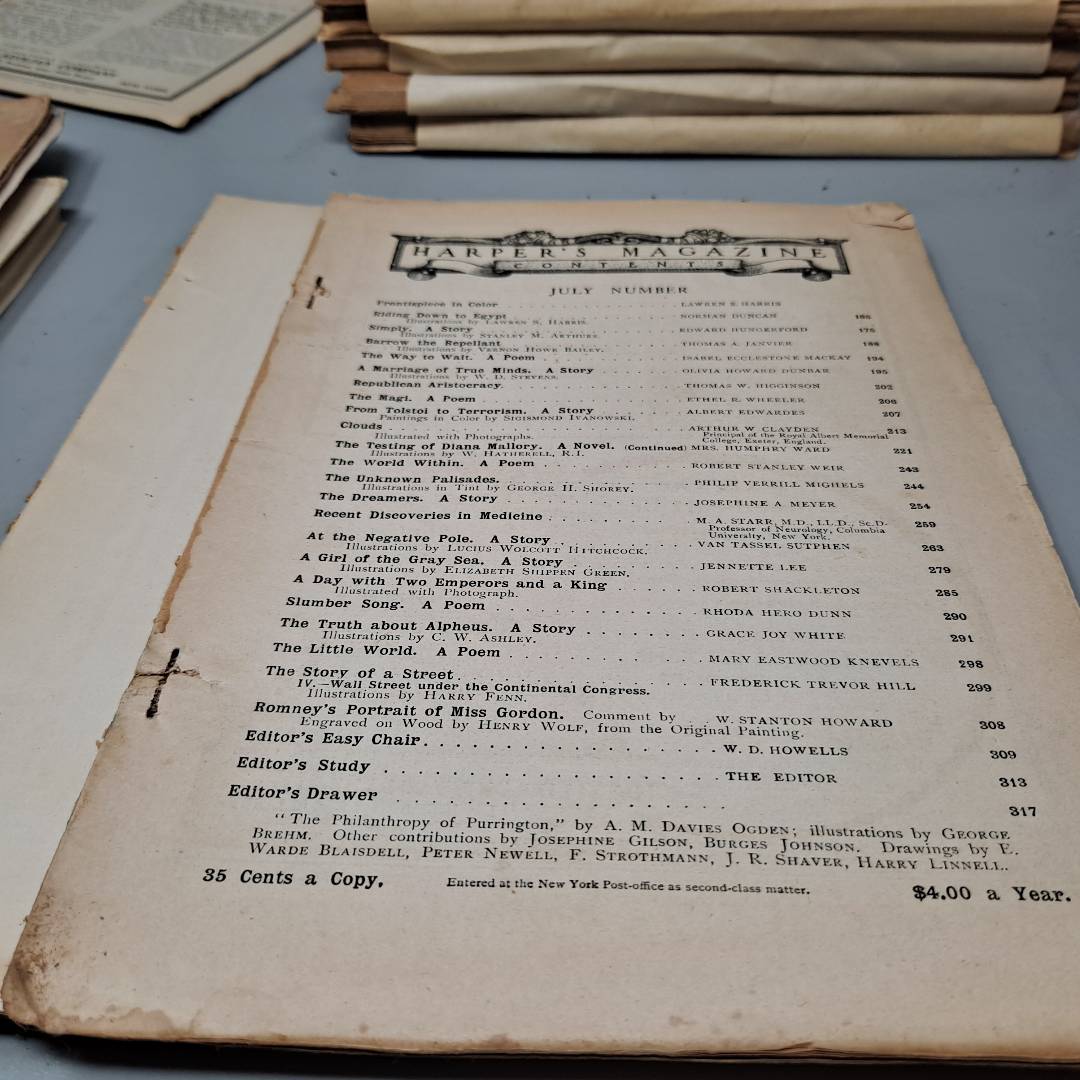 HARPER'S MAGAZINE
CONTENTS
JULY NUMBER
Frontispiece in Color . . . . . . . . . . . LAWREN S. HARRIS
Riding Down to Egypt . . . . . . . . . . . NORMAN DUNCAN 165
Illustrations by LAWREN S. HARRIS.
Simply. A Story . . . . . . . . . . . EDWARD HUNGERFORD 175
Illustrations by STANLEY M. ARTHURS.
Barrow the Repellant . . . . . . . . . . . THOMAS A. JANVIER
Illustrations by VERNON HOWE BAILEY.
The Way to Wait. A Poem . . . . . . . . . . ISABEL ECCLESTONE MACKAY 194
A Marriage of True Minds. A Story . . . . . . . OLIVIA HOWARD DUNBAR 195
Illustrations by W. D. STEVENS.
Republican Aristocracy. . . . . . . . . . . THOMAS W. HIGGINSON 202
The Magi. A Poem . . . . . . . . . . . ETHEL R. WHEELER 206
From Tolstoi to Terrorism. A Story . . . . . . . ALBERT EDWARDES 207
Paintings in Color by SIGISMOND IVANOWSKI.
Clouds . . . . . . . . . . . . . . . ARTHUR W CLAYDEN 213
Illustrated with Photographs. Principal of the Royal Albert Memorial
College, Exeter, England.
The Testing of Diana Mallory. A Novel. (Continued) MRS. HUMPHRY WARD 221
Illustrations by W. HATHERELL, R.I.
The World Within. A Poem . . . . . . . . . . ROBERT STANLEY WEIR 243
The Unknown Palisades. . . . . . . . . . . PHILIP VERRILL MIGHELS 244
Illustrations in Tint by GEORGE H. SHOREY.
The Dreamers. A Story . . . . . . . . . . . JOSEPHINE A MEYER 254
Recent Discoveries in Medicine . . . . . . . . . M. A. STARR, M.D., LL.D., Sc.D. 259
Professor of Neurology, Columbia
University, New York.
At the Negative Pole. A Story . . . . . . . . . VAN TASSEL SUTPHEN 263
Illustrations by LUCIUS WOLCOTT HITCHCOCK.
A Girl of the Gray Sea. A Story . . . . . . . . JENNETTE LEE 279
Illustrations by ELIZABETH SHIPPEN GREEN.
A Day with Two Emperors and a King . . . . . . ROBERT SHACKLETON 285
Illustrated with Photograph.
Slumber Song. A Poem . . . . . . . . . . . RHODA HERO DUNN 290
The Truth about Alpheus. A Story . . . . . . . GRACE JOY WHITE 291
Illustrations by C. W. ASHLEY.
The Little World. A Poem . . . . . . . . . . MARY EASTWOOD KNEVELS 298
The Story of a Street. . . . . . . . . . . . FREDERICK TREVOR HILL 299
IV.—Wall Street under the Continental Congress.
Illustrations by HARRY FENN.
Romney's Portrait of Miss Gordon. Comment by . . W. STANTON HOWARD 308
Engraved on Wood by HENRY WOLF, from the Original Painting.
Editor's Easy Chair. . . . . . . . . . . . . W. D. HOWELLS 309
Editor's Study . . . . . . . . . . . . . . THE EDITOR 313
Editor's Drawer . . . . . . . . . . . . . . 317
"The Philanthropy of Purrington," by A. M. DAVIES OGDEN; illustrations by GEORGE
BREHM. Other contributions by JOSEPHINE GILSON, BURGES JOHNSON. Drawings by E.
WARDE BLAISDELL, PETER NEWELL, F. STROTHMANN, J. R. SHAVER, HARRY LINNELL.
35 Cents a Copy. Entered at the New York Post-office as second-class matter. $4.00 a Year.